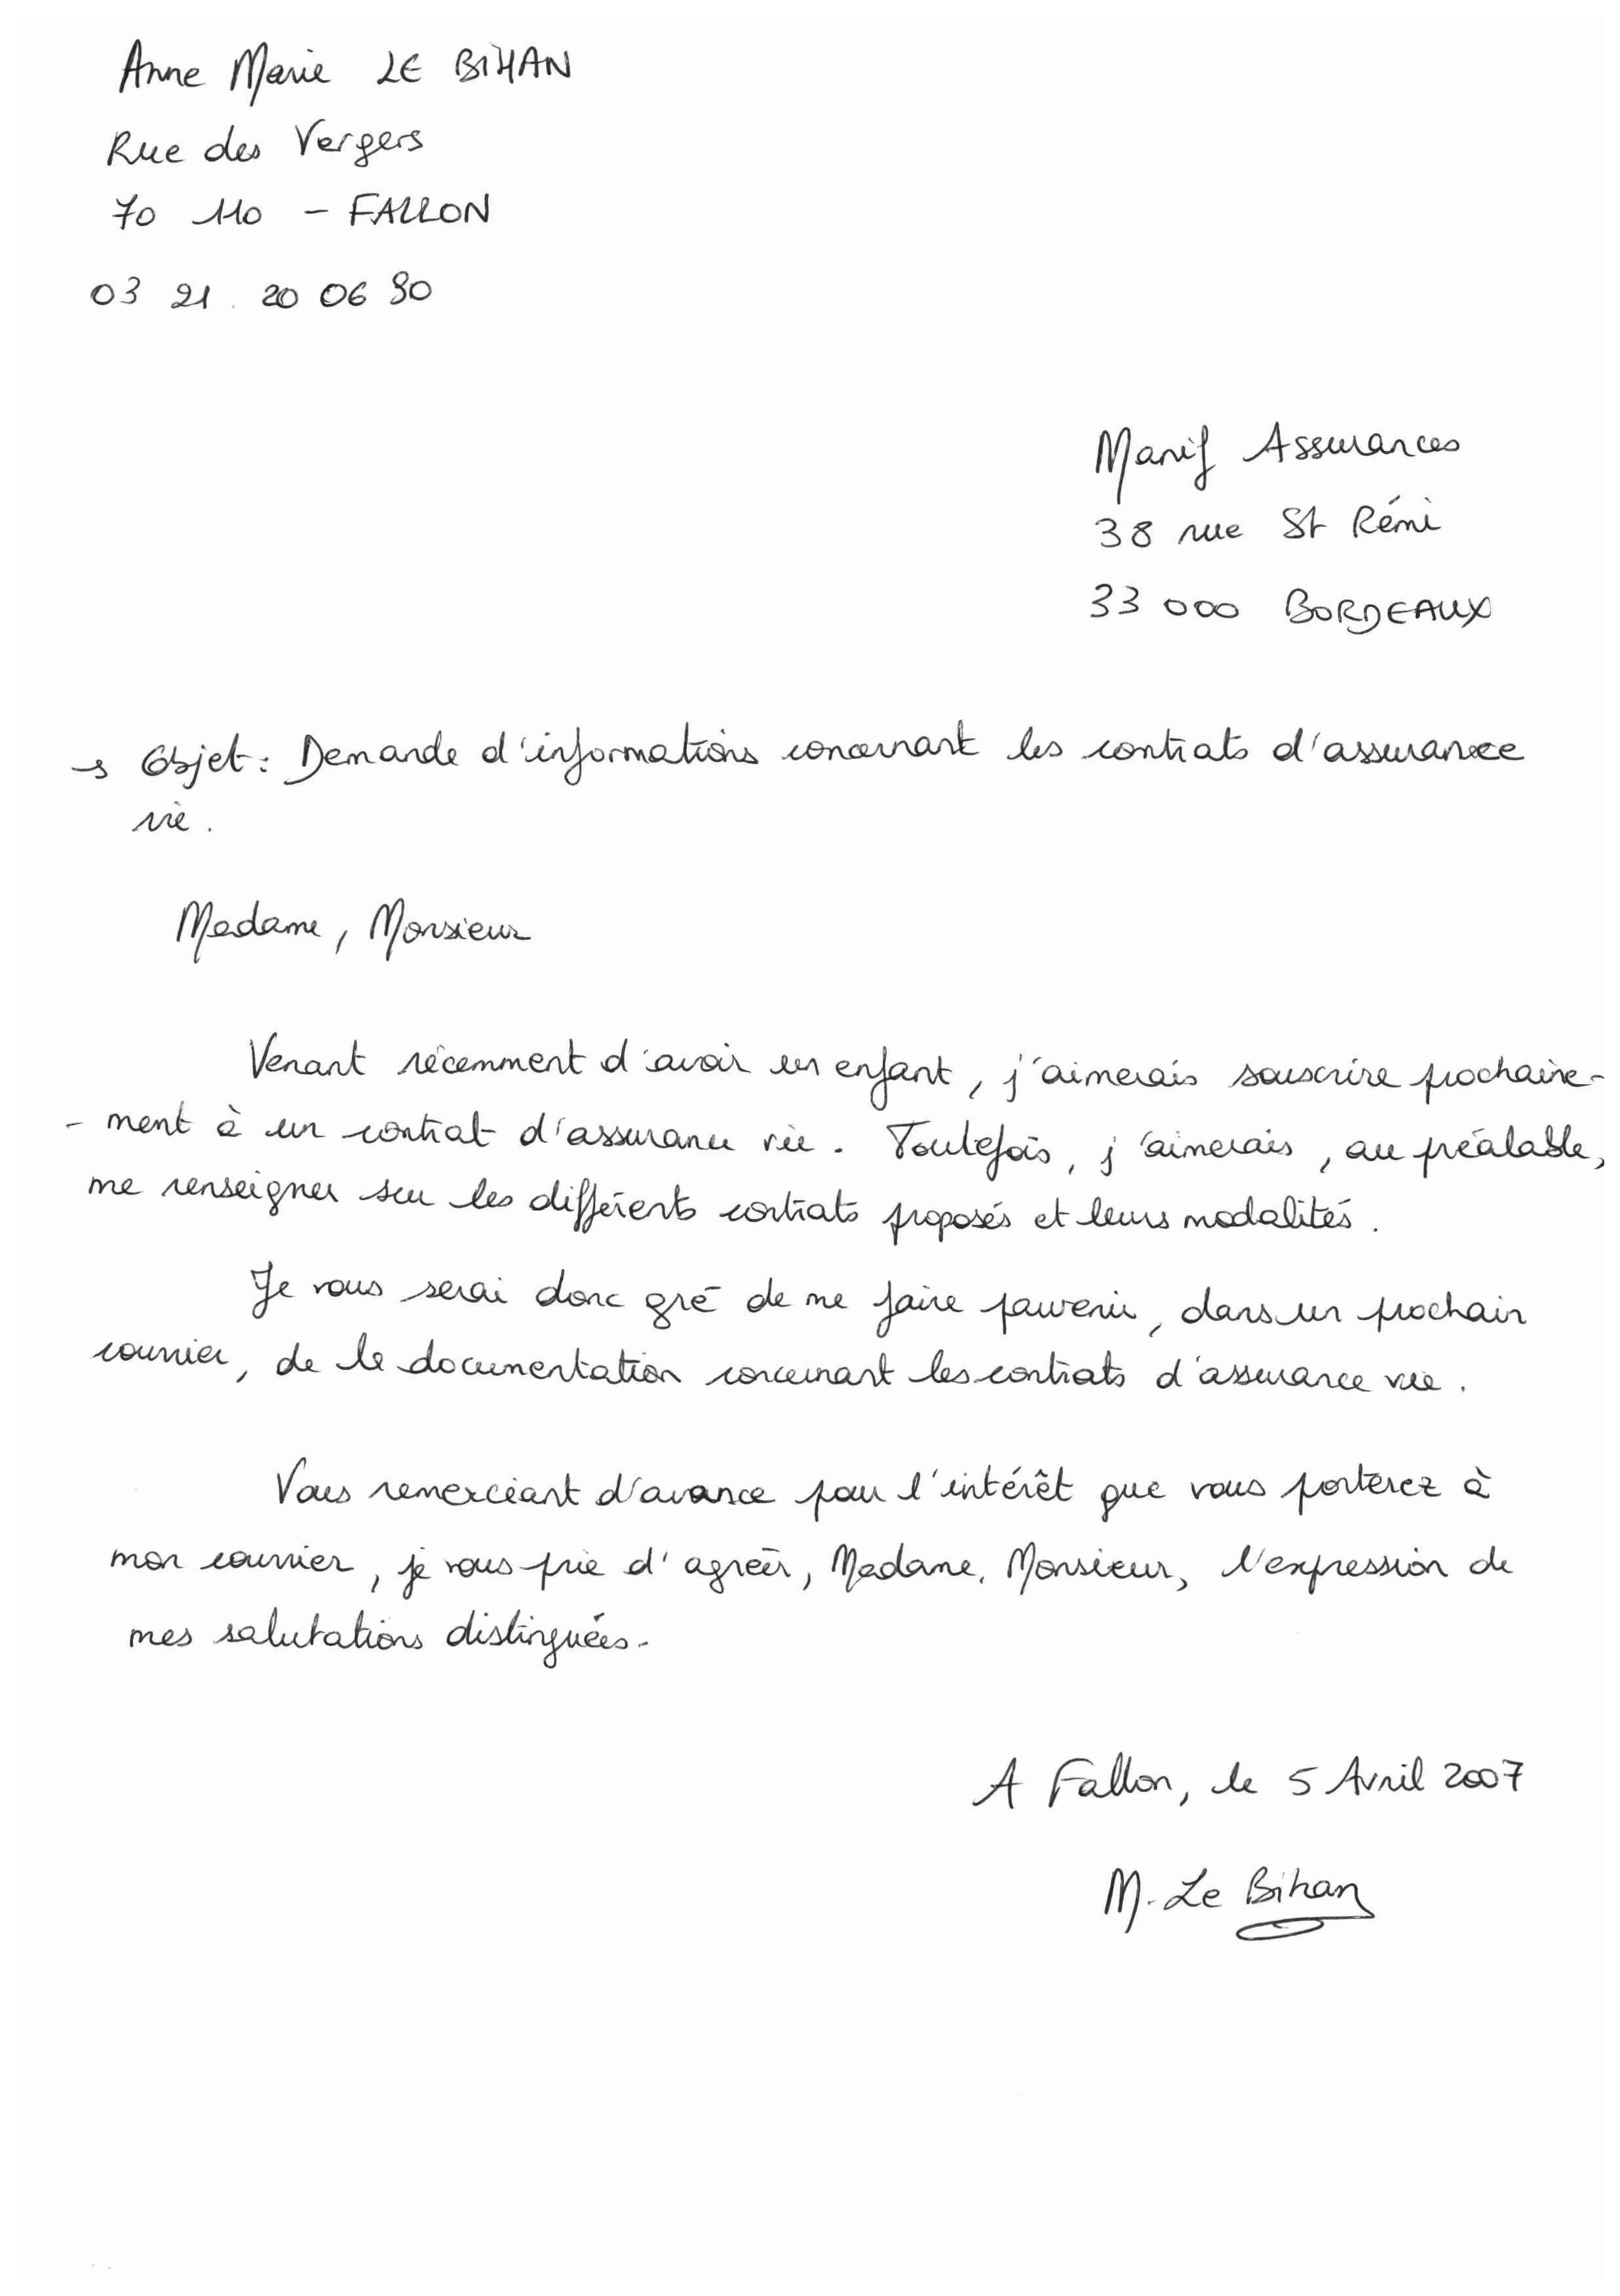 Anne Marie LE BIHAN
Rue des Vergers
70 110 - FALLON
03 21. 20 06 90
Manif Assurances
38 rue St Rémi
33 000 BORDEAUX
→ Objet : Demande d'informations concernant les contrats d'assurance
vie.
Madame, Monsieur
Venant récemment d'avoir un enfant, j'aimerais souscrire prochaine-
- ment à un contrat d'assurance vie. Toutefois, j'aimerais, au préalable,
me renseigner sur les différents contrats proposés et leurs modalités.
Je vous serai donc gré de me faire parvenir, dans un prochain
courrier, de la documentation concernant les contrats d'assurance vie.
Vous remerciant d'avance pour l'intérêt que vous porterez à
mon courrier, je vous prie d'agréer, Madame, Monsieur, l'expression de
mes salutations distinguées.
A Fallon, le 5 Avril 2007
M. Le Bihan